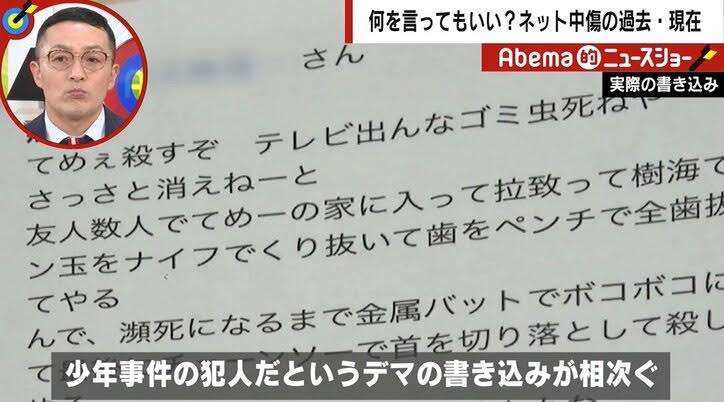 何を言ってもいい？ネット中傷の過去・現在
Abema的ニュースショー
実際の書き込み
さん
てめぇ殺すぞ　テレビ出んなゴミ虫死ねや
さっさと消えねーと
友人数人でてめーの家に入って拉致って樹海で
ン玉をナイフでくり抜いて歯をペンチで全歯抜
てやる
んで、瀕死になるまで金属バットでボコボコに
ーンソーで首を切り落として殺し
少年事件の犯人だというデマの書き込みが相次ぐ